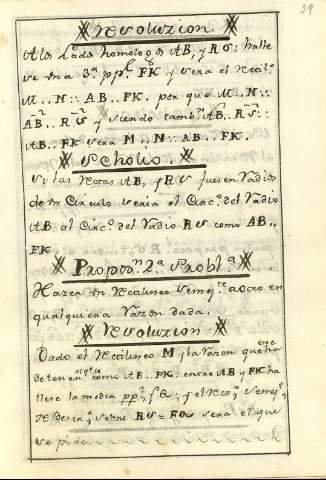 39
Resoluzion.
A los Lados homologos AB, y RS: halle
se una 3ª ppl FK y sera el Recilº
M..N:: AB..FK. por que M..N::
AB..RS y siendo tambn AB..RS::
AB..FK sera M..N:: AB..FK.
Scholio.
Si las Rectas AB, y RS fuesen Radios
de un Circulo seria el Circº del Radio
AB al Circº del Radio RS como AB..
FK
Propon 2ª Problª
Hazer un Recilineo Semejte a otro en
qualquiera Razon dada.
Resoluzion
Dado el Recilineo M y la Razon que
de tener como AB..FK: entre AB y FK ha
llese la media ppl y el Recº Semejte
sobre RS = FQ sera el que
se pide.